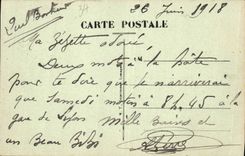 26 Juin 1918
CARTE POSTALE
Ma Zézette
Deux mots à la hâte
pour te dire que je n'arriverai
que Samedi matin à 8h,45 à la
gare de Mille Baisers et
un Beau Bibi